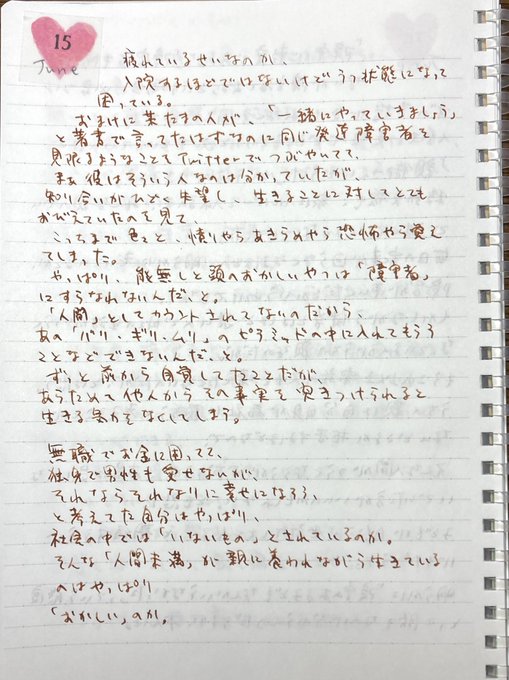 15
June
疲れているせいなのか、
入院するほどではないけどうつ状態になって
困っている。
おまけに某たまの人が、「一緒にやっていきましょう」
と著書で言ってたはずなのに同じ発達障害者を
見限るようなことをTwitterでつぶやいてて、
まぁ彼はそういう人なのは分かっていたが、
知り合いがひどく失望し、生きることに対してとても
おびえていたのを見て、
こっちまで色々と、憤りやらあきらめやら恐怖やら覚え
てしまった。
やっぱり、能無しと頭のおかしいやつは「障害者」
にすらなれないんだ、と。
「人間」としてカウントされてないのだから、
あの「バリ・ギリ・ムリ」のピラミッドの中に入れてもらう
ことなどできないんだ、と。
ずっと前から自覚してたことだが、
あらためて他人からその事実を突きつけられると
生きる気力をなくしてしまう。
無職でお金に困ってて、
独身で男性も愛せないが、
それならそれなりに幸せになろう、
と考えてた自分はやっぱり、
社会の中では「いないもの」とされているのか。
そんな「人間未満」が親に養われながら生きている
のはやっぱり
「おかしい」のか。